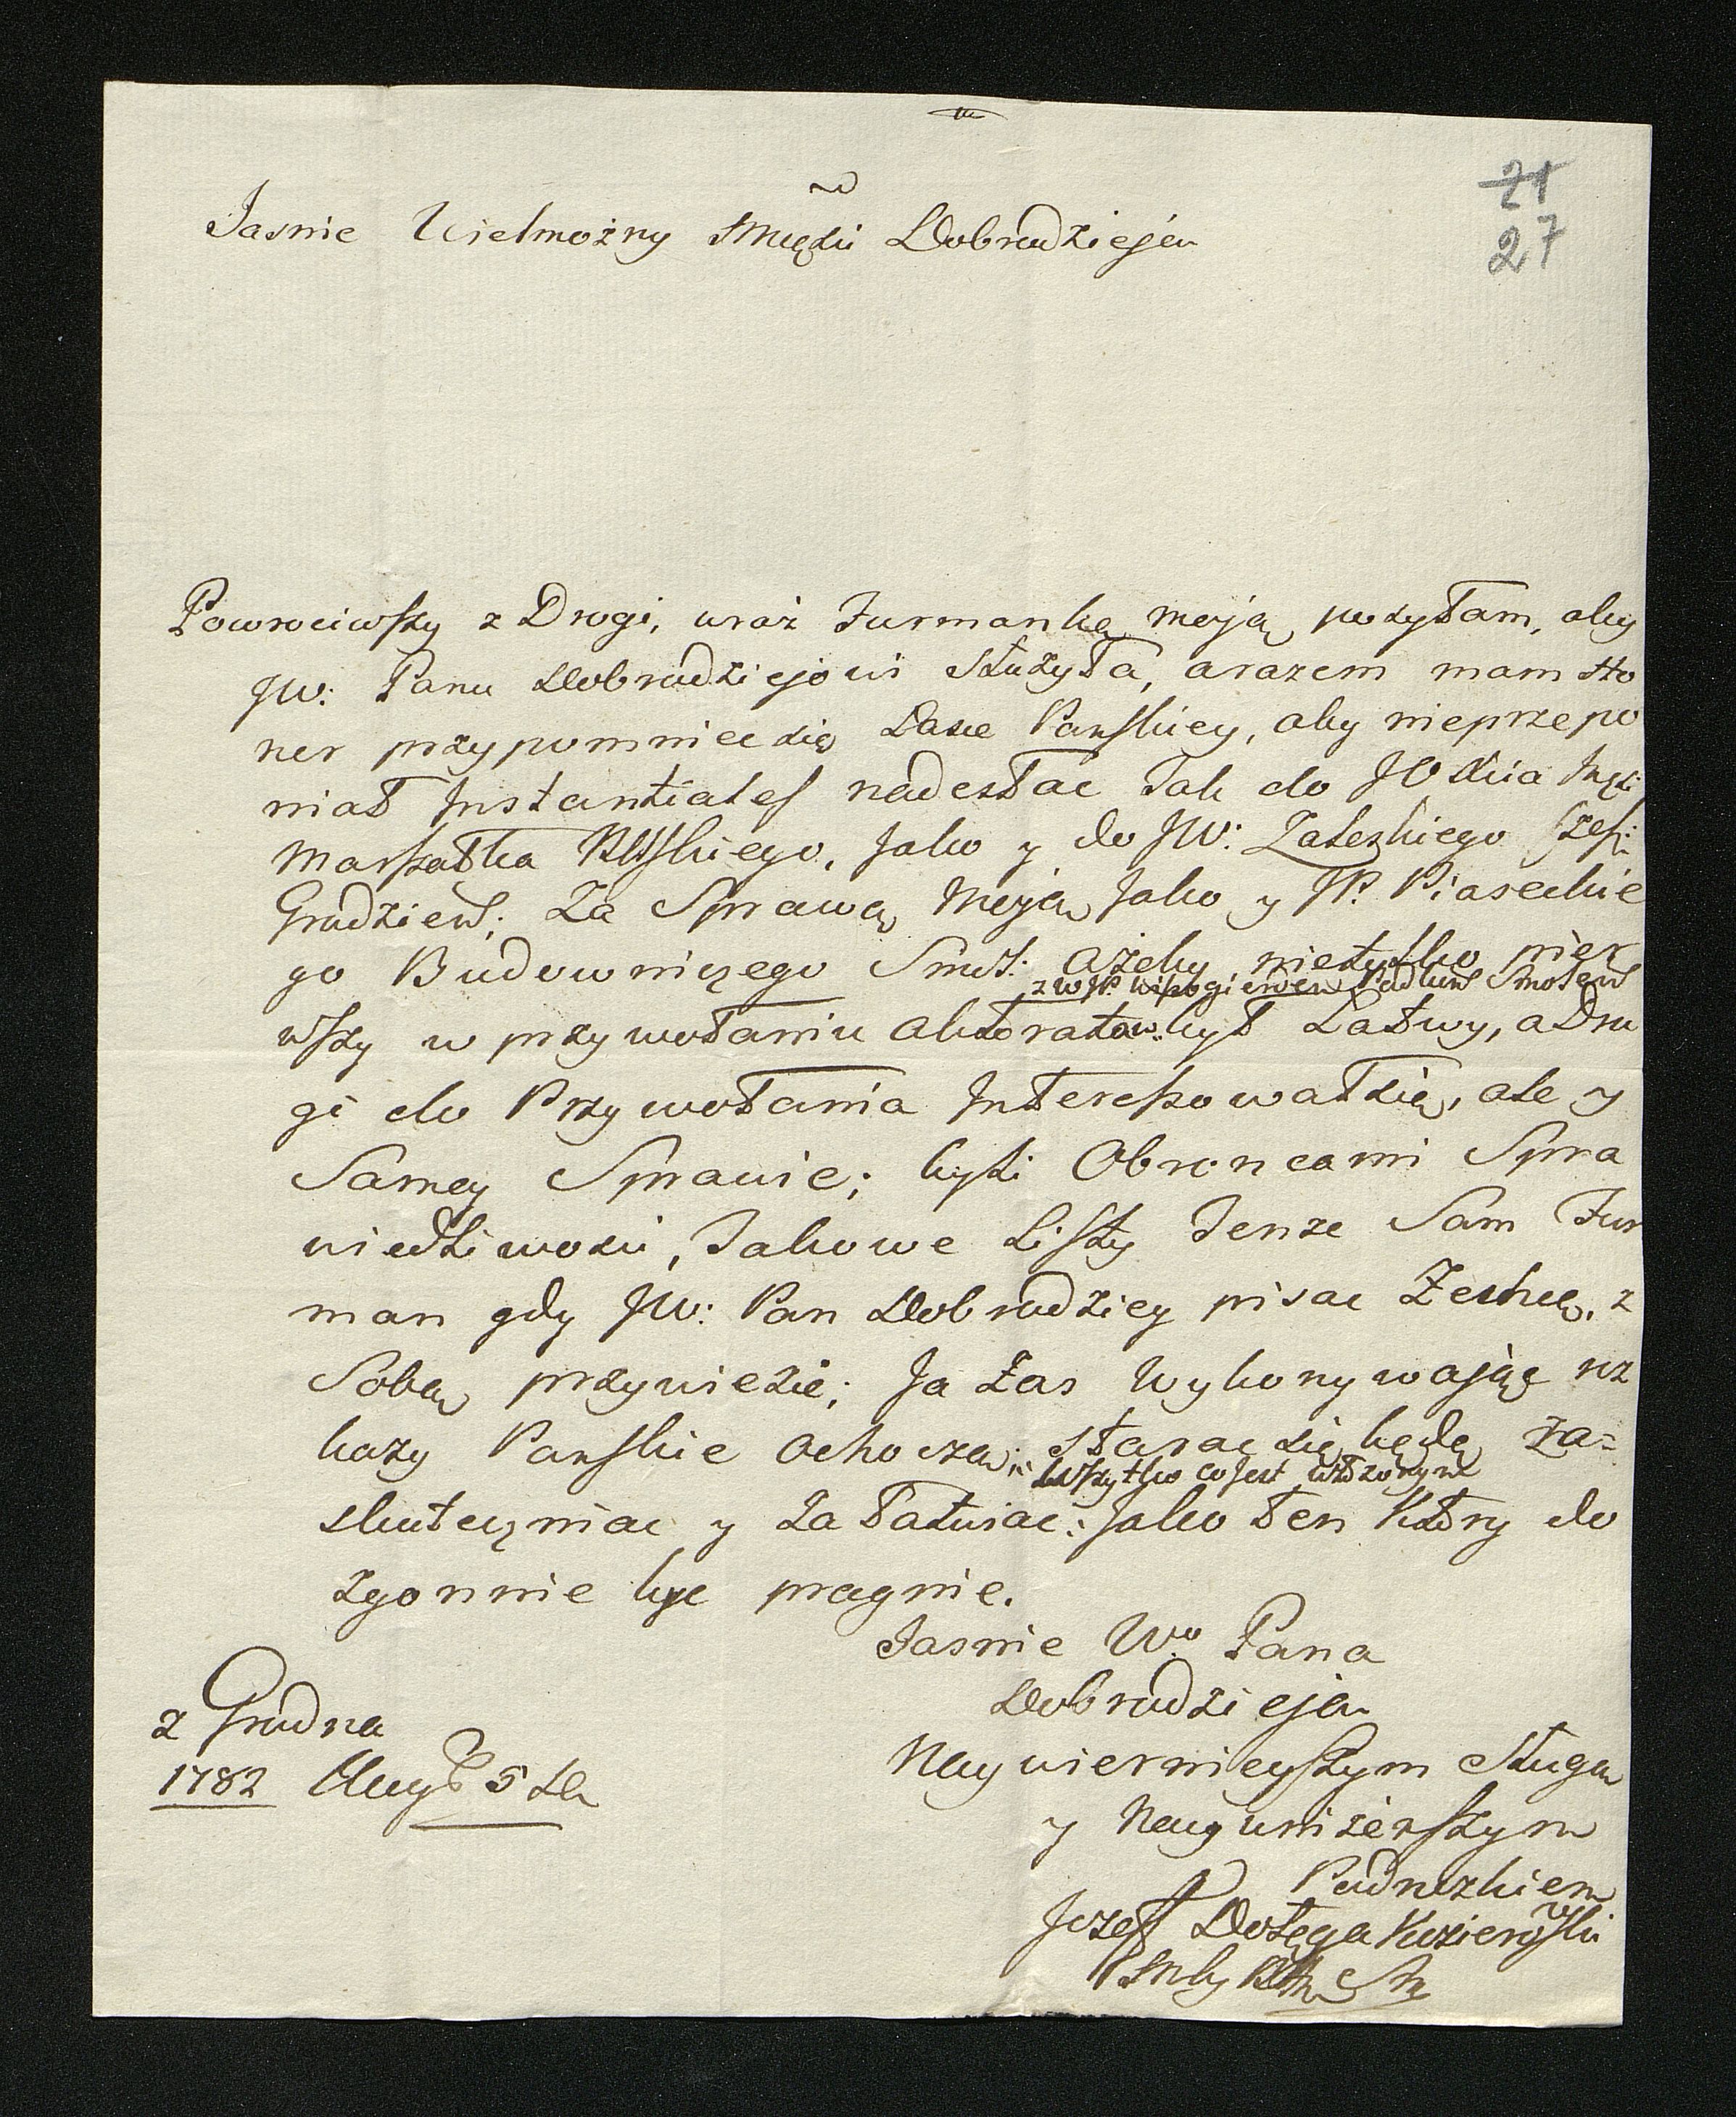 21
27
Jasnie Wielmożny Mści Dobrodzieju
Powrociwszy z Drogi, wraz Furmankę moją posyłam, aby
JW: Panu Dobrodziejowi służyła, a razem mam Ho
nor przypomniec się Łasce Panskiey, aby nieprzepo
niał Instantiales nadesłac tak do JO Xcia
Marszałka, Jako y do JW: Zaleskiego Szefa
Grodzień: Za Sprawą Moją Jako y JP. Piaseckie
go Budowniczego Smst: ażeby nietylko pier
z WJP.
wszy w przywołaniu Aktoratow: był Łatwy, a Dru
gi do Przywołania Interessował się, ale y
Samey Sprawie; byli Obroncami Spra
wiedliwosci, Jakowe Listy Tenze Sam Fur
man gdy JW: Pan Dobrodziey pisac Zechce, z
Sobą przywiezie; Ja Zas Wykonywając roz
kazy Panskie Ochoczo; starac się będę za=
wszytko co Jest włożonym
skuteczniac y załatwiac: Jako ten Ktory do
zgonnie byc pragnie.
Jasnie Wo Pana
Dobrodzieja
Naywiernieyszym Sługą
y Nayuniżenszym
Podnozkiem
Jozeff Dołęga Kozierowski
z Grodna
1782 Aug 5 Da